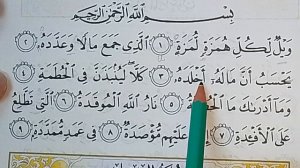 بِسْمِ اللَّهِ الرَّحْمَٰنِ الرَّحِيمِ
وَيْلٌ لِّكُلِّ هُمَزَةٍ لُّمَزَةٍ ١ الَّذِي جَمَعَ مَالًا وَعَدَّدَهُ ٢
يَحْسَبُ أَنَّ مَالَهُ أَخْلَدَهُ ٣ كَلَّا لَيُنبَذَنَّ فِي الْحُطَمَةِ ٤
وَمَا أَدْرَىٰكَ مَا ٥ نَارُ اللَّهِ الْمُوقَدَةُ ٦ الَّتِي تَطَّلِعُ
عَلَى الْأَفْـِٔدَةِ ٧ عَلَيْهِم مُّؤْصَدَةٌ ٨ فِي عَمَدٍ مُّمَدَّدَةٍ ٩